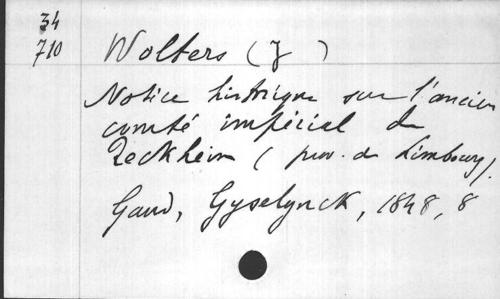 34
710
Wolters (J )
Notice historique sur l'ancien
comté impérial de
Reckheim (prov. de Limbourg).
Gand, Gyselynck, 1848, 8